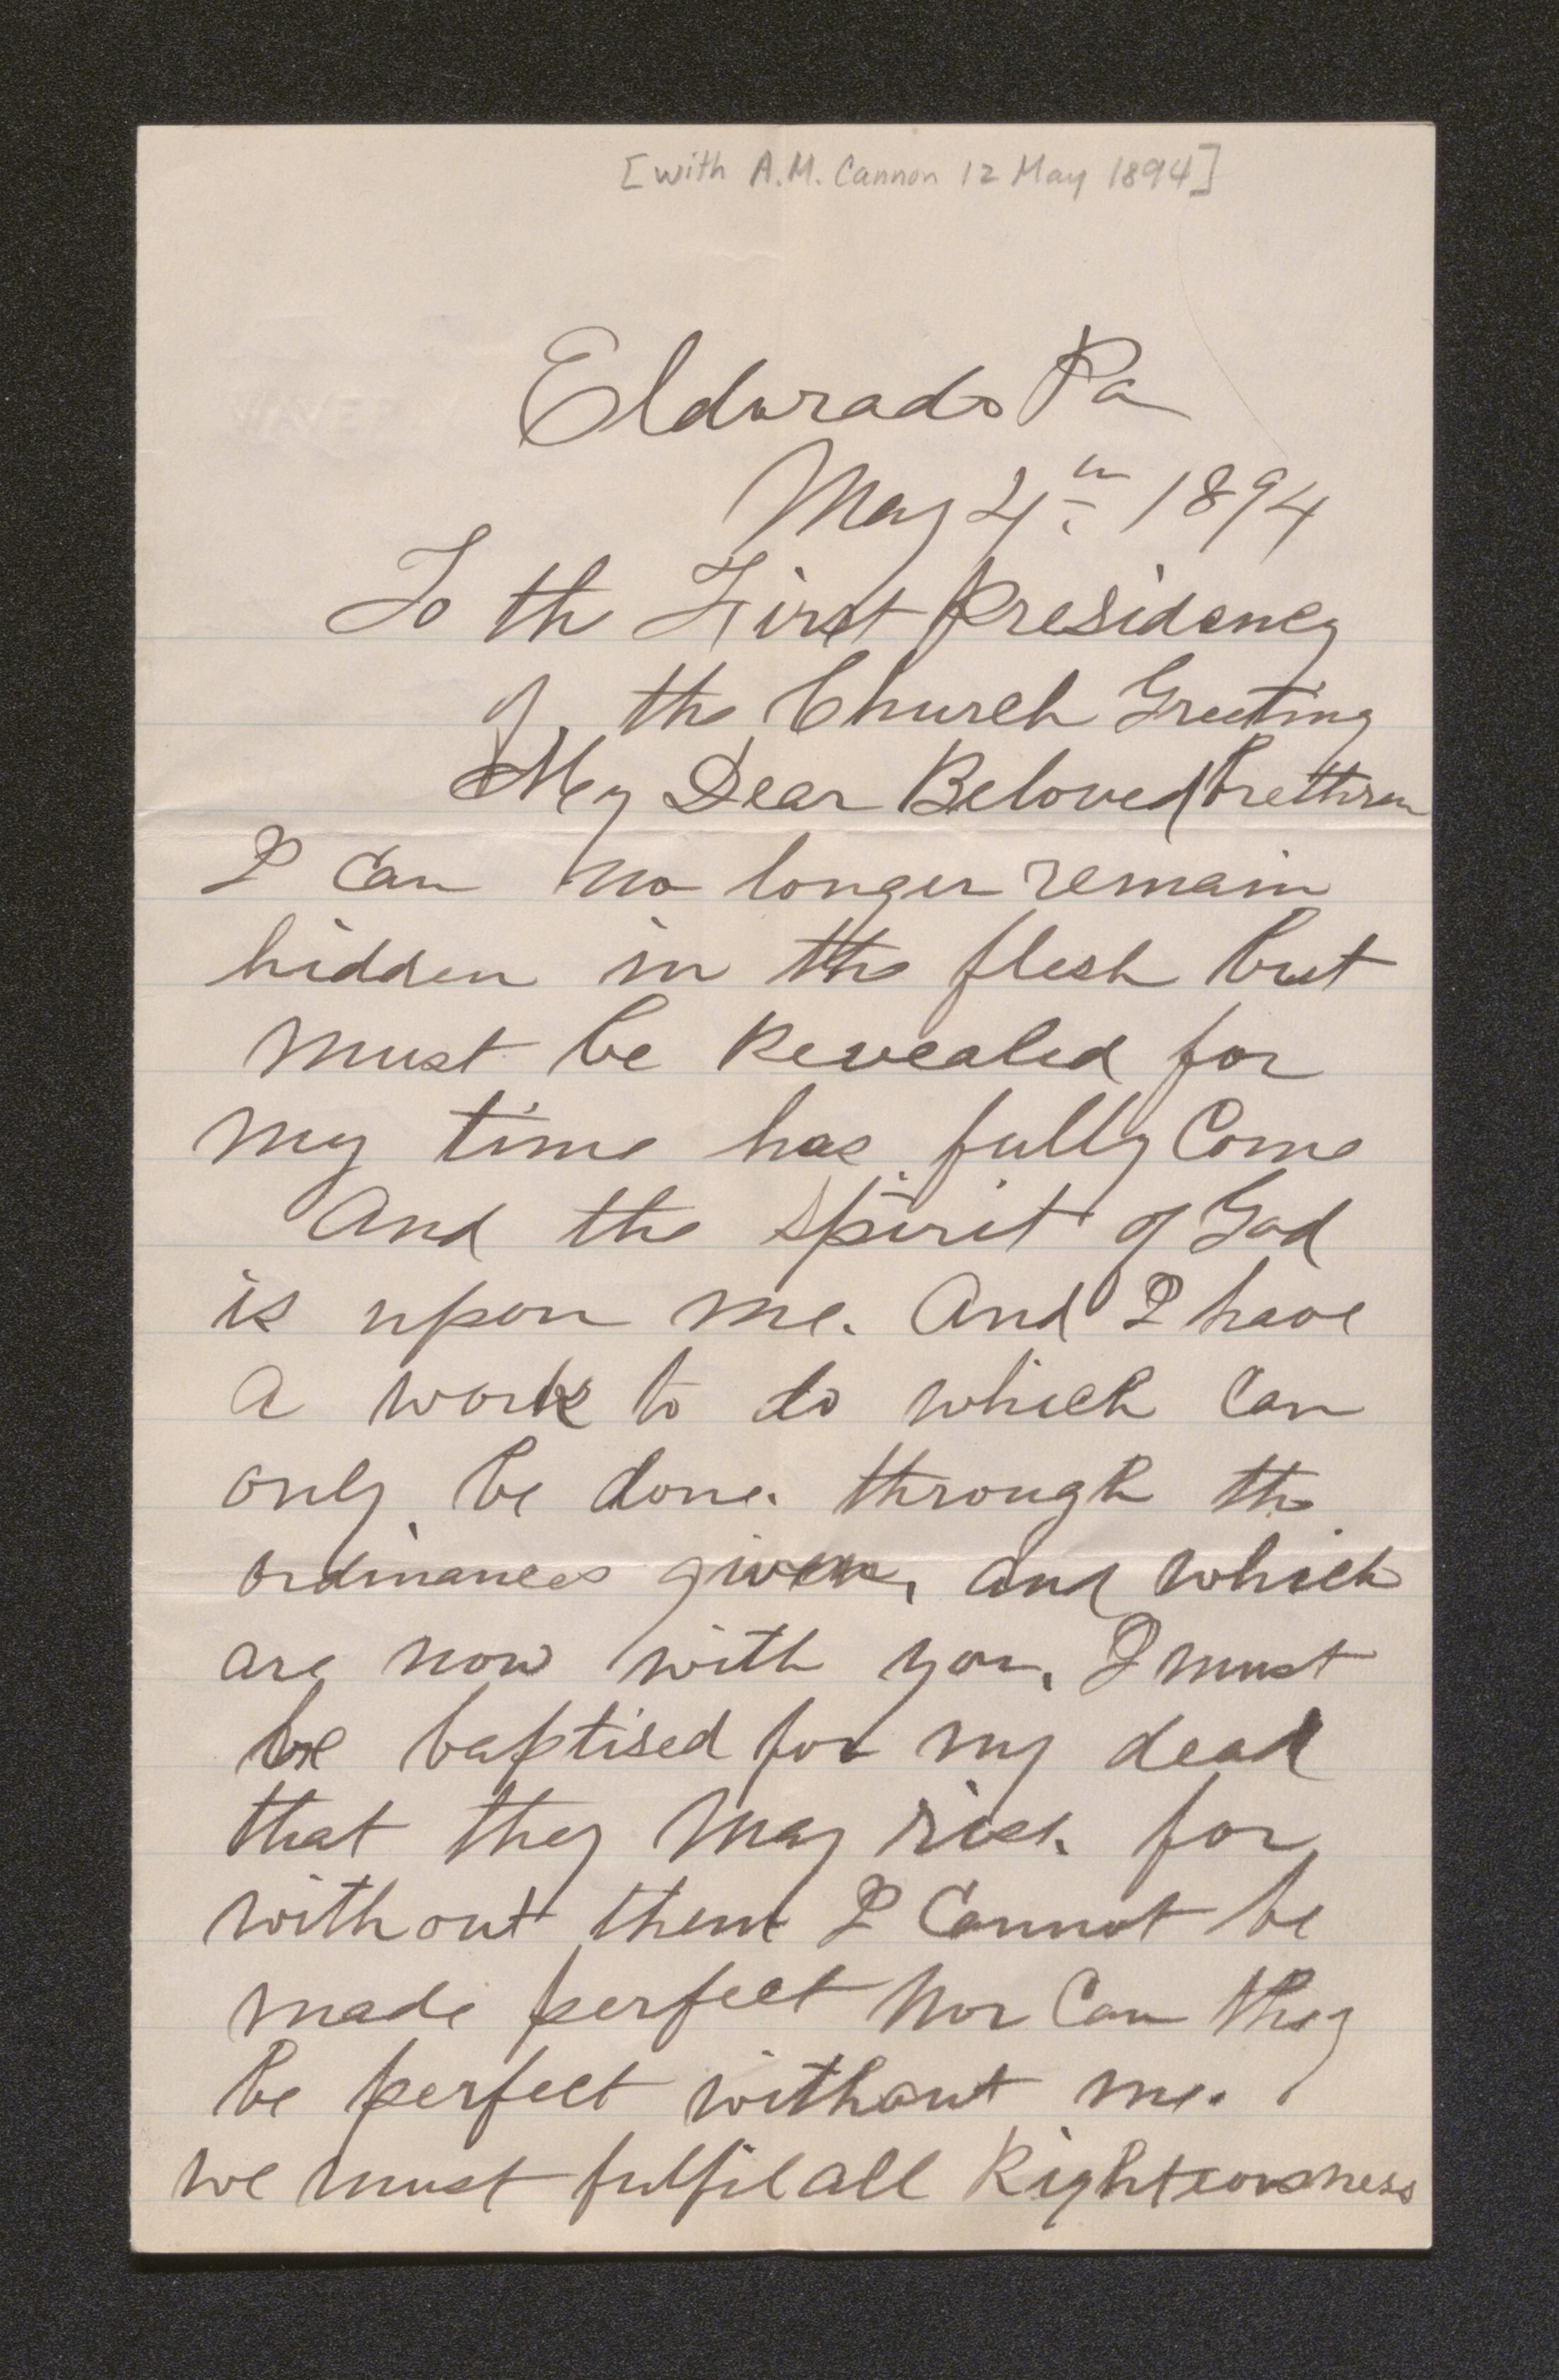 [with A.M. Cannon 12 May 1894]
Eldorado Pa
May 4th 1894
To the First Presidency
of the Church Greeting
My Dear Beloved Brethren
I Can no longer remain
hidden in the flesh but
must be Revealed for
my time has fully Come
And the spirit of God
is upon me. And I have
a work to do which Can
only be done. through the
ordinances given, and which
are now with you. I must
be baptised for my dead
that they may rise. for
without them I Cannot be
made perfect Nor Can they
be perfect without me.
we must fulfil all Righteousness